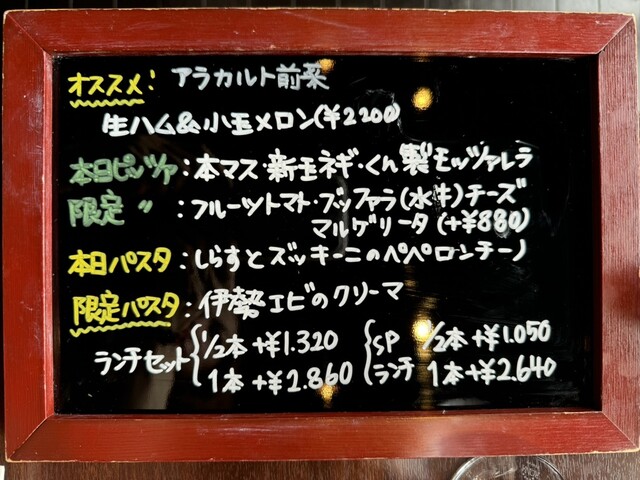 オススメ: アラカルト前菜
生ハム&小玉メロン(¥2200)
本日ピッツァ:本マス・新玉ネギ・くん製モッツァレラ
限定 〃 :フルーツトマト・ブッファラ(水牛)チーズ
マルゲリータ(+¥880)
本日パスタ:しらすとズッキーニのペペロンチーノ
限定パスタ:伊勢エビのクリーマ
ランチセット{½本+¥1.320 {SP ½本+¥1.050
1本+¥2.860 ランチ 1本+¥2.640